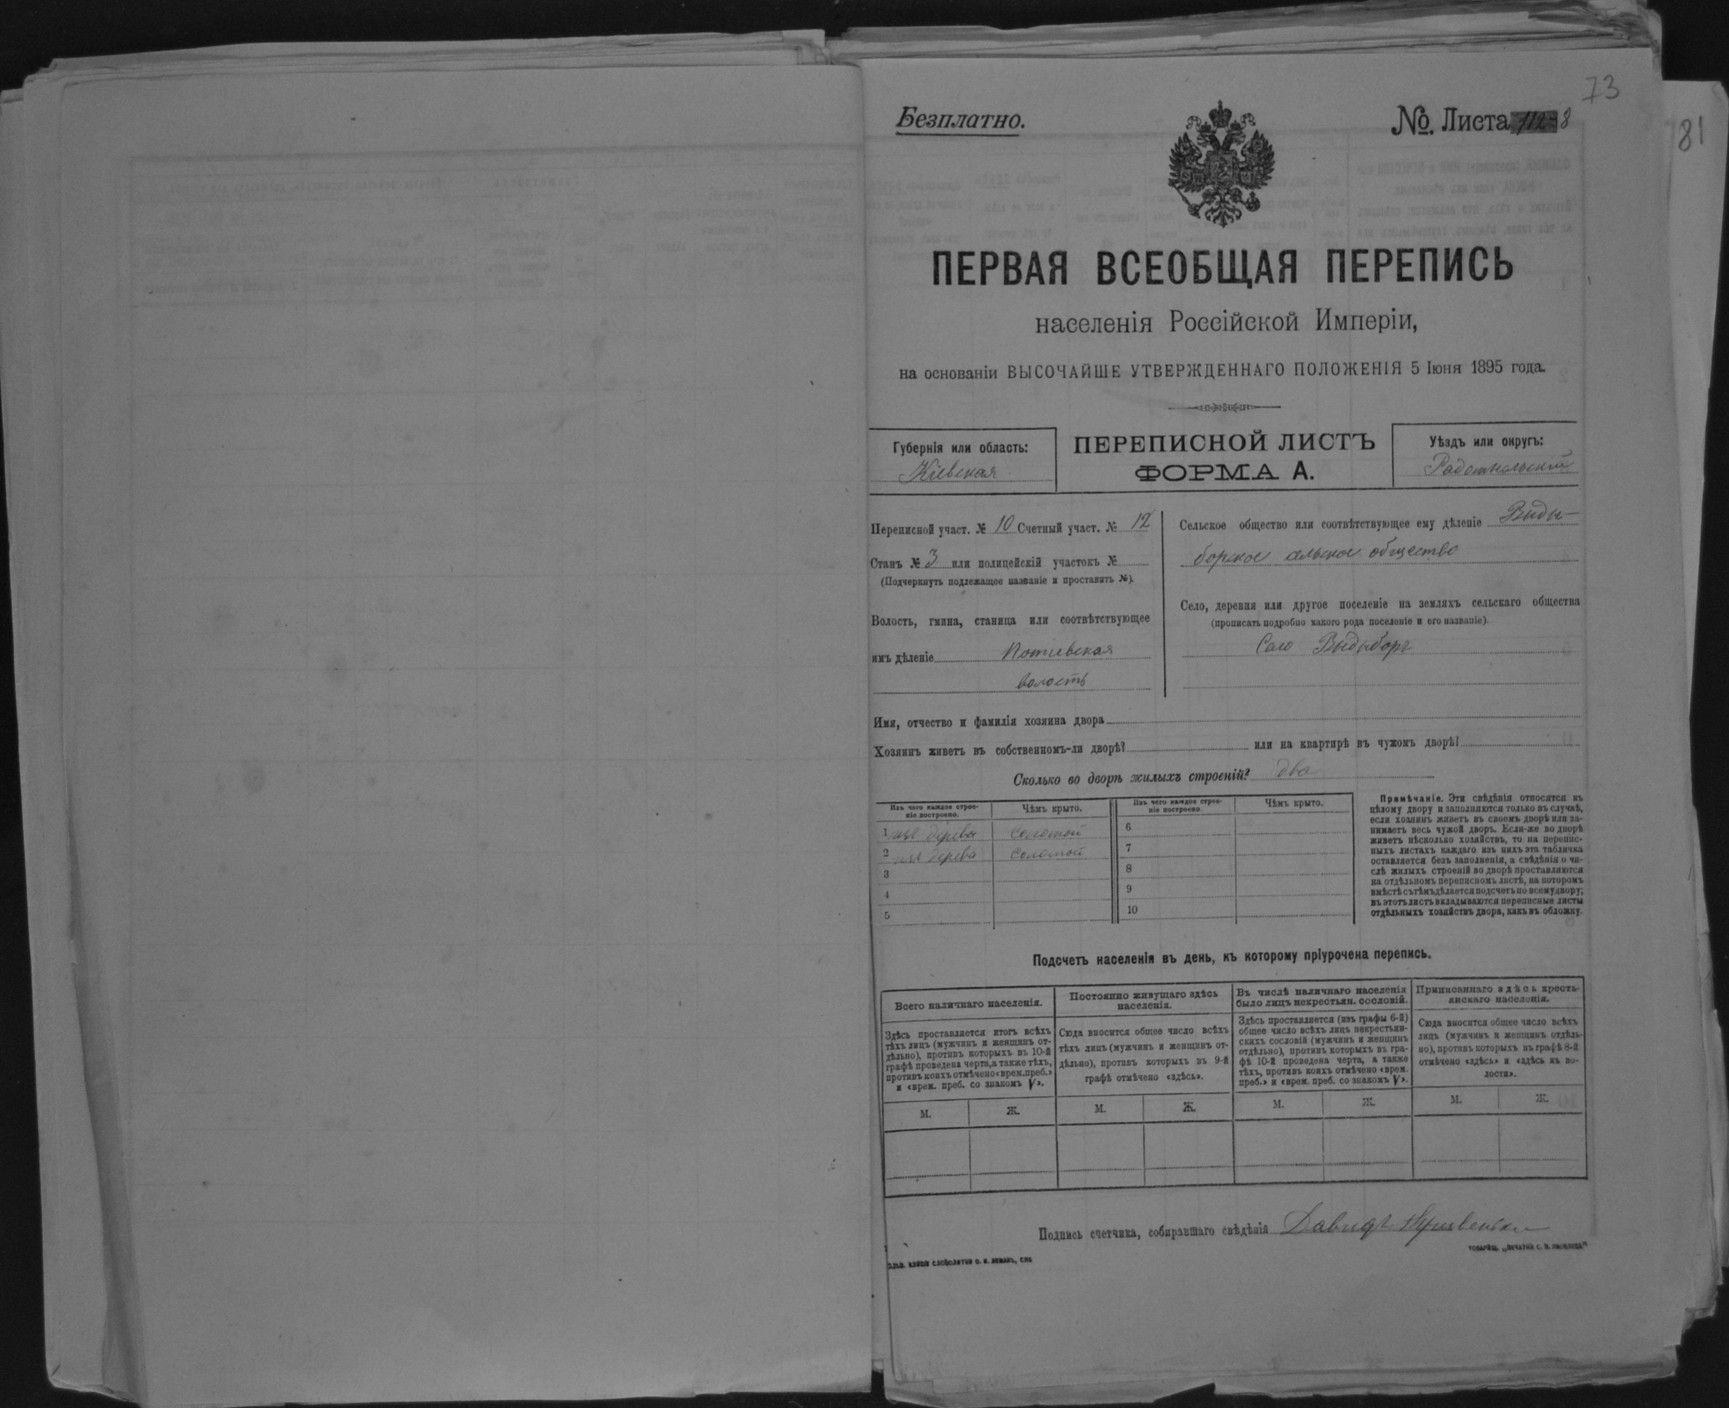 73
81
Безплатно.
№. Листа 112 8
ПЕРВАЯ ВСЕОБЩАЯ ПЕРЕПИСЬ
населенія Россійской Имперіи,
на основаніи ВЫСОЧАЙШЕ УТВЕРЖДЕННАГО ПОЛОЖЕНІЯ 5 Іюня 1895 года.
Губернія или область:
Кіевская
ПЕРЕПИСНОЙ ЛИСТЪ
ФОРМА А.
Уѣздъ или округъ:
Радомысльскій
Переписной участ. № 10 Счетный участ. № 12
Станъ № 3 или полицейскій участокъ №
(Подчеркнуть подлежащее названіе и проставить №).
Волость, гмина, станица или соотвѣтствующее
имъ дѣленіе Потіевская
волость
Сельское общество или соотвѣтствующее ему дѣленіе Выды-
борское сельское общество
Село, деревня или другое поселеніе на земляхъ сельскаго общества
(прописать подробно какого рода поселеніе и его названіе).
Село Выдыборъ
Имя, отчество и фамилія хозяина двора
Хозяинъ живетъ въ собственномъ-ли дворѣ? или на квартирѣ въ чужомъ дворѣ?
Сколько во дворѣ жилыхъ строеній? два
Изъ чего каждое строе-
ніе построено.
Чѣмъ крыто.
1 изъ дерева соломой
2 изъ дерева соломой
3
4
5
Изъ чего каждое строе-
ніе построено.
Чѣмъ крыто.
6
7
8
9
10
Примѣчаніе. Эти свѣдѣнія относятся къ
цѣлому двору и заполняются только въ случаѣ,
если хозяинъ живетъ въ своемъ дворѣ или за-
нимаетъ весь чужой дворъ. Если-же во дворѣ
живетъ нѣсколько хозяйствъ, то на перепис-
ныхъ листахъ каждаго изъ нихъ эта табличка
оставляется безъ заполненія, а свѣдѣнія о чи-
слѣ жилыхъ строеній во дворѣ проставляются
на отдѣльномъ переписномъ листѣ, на которомъ
вмѣстѣ съ тѣмъ дѣлается подсчетъ по всему двору;
въ этотъ листъ вкладываются переписные листы
отдѣльныхъ хозяйствъ двора, какъ въ обложку.
Подсчетъ населенія въ день, къ которому пріурочена перепись.
Всего наличнаго населенія.
Здѣсь проставляется итогъ всѣхъ
тѣхъ лицъ (мужчинъ и женщинъ от-
дѣльно), противъ которыхъ въ 10-й
графѣ проведена черта, а также тѣхъ,
противъ коихъ отмѣчено «врем. преб.»
и «врем. преб. со знакомъ V».
М. Ж.
Постоянно живущаго здѣсь
населенія.
Сюда вносится общее число всѣхъ
тѣхъ лицъ (мужчинъ и женщинъ от-
дѣльно), противъ которыхъ въ 9-й
графѣ отмѣчено «здѣсь».
М. Ж.
Въ числѣ наличнаго населенія
было лицъ некрестьян. сословій.
Здѣсь проставляется (изъ графы 6-й)
общее число всѣхъ лицъ некрестьян-
скихъ сословій (мужчинъ и женщинъ
отдѣльно), противъ которыхъ въ гра-
фѣ 10-й проведена черта, а также
тѣхъ, противъ коихъ отмѣчено «врем.
преб.» и «врем. преб. со знакомъ V».
М. Ж.
Приписаннаго здѣсь кресть-
янскаго населенія.
Сюда вносится общее число всѣхъ
лицъ (мужчинъ и женщинъ отдѣль-
но), противъ которыхъ въ графѣ 8-й
отмѣчено «здѣсь» и «здѣсь въ во-
лости».
М. Ж.
Подпись счетчика, собиравшаго свѣдѣнія Давидъ